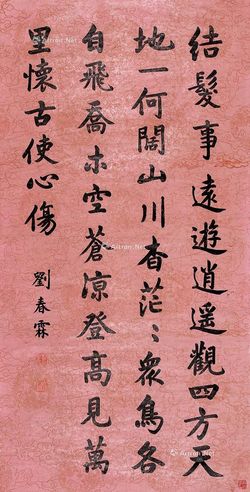 结髮事遠遊逍遥觀四方天
地一何闊山川杳茫〻衆鳥各
自飛喬木空蒼凉登高見萬
里懷古使心傷
劉春霖